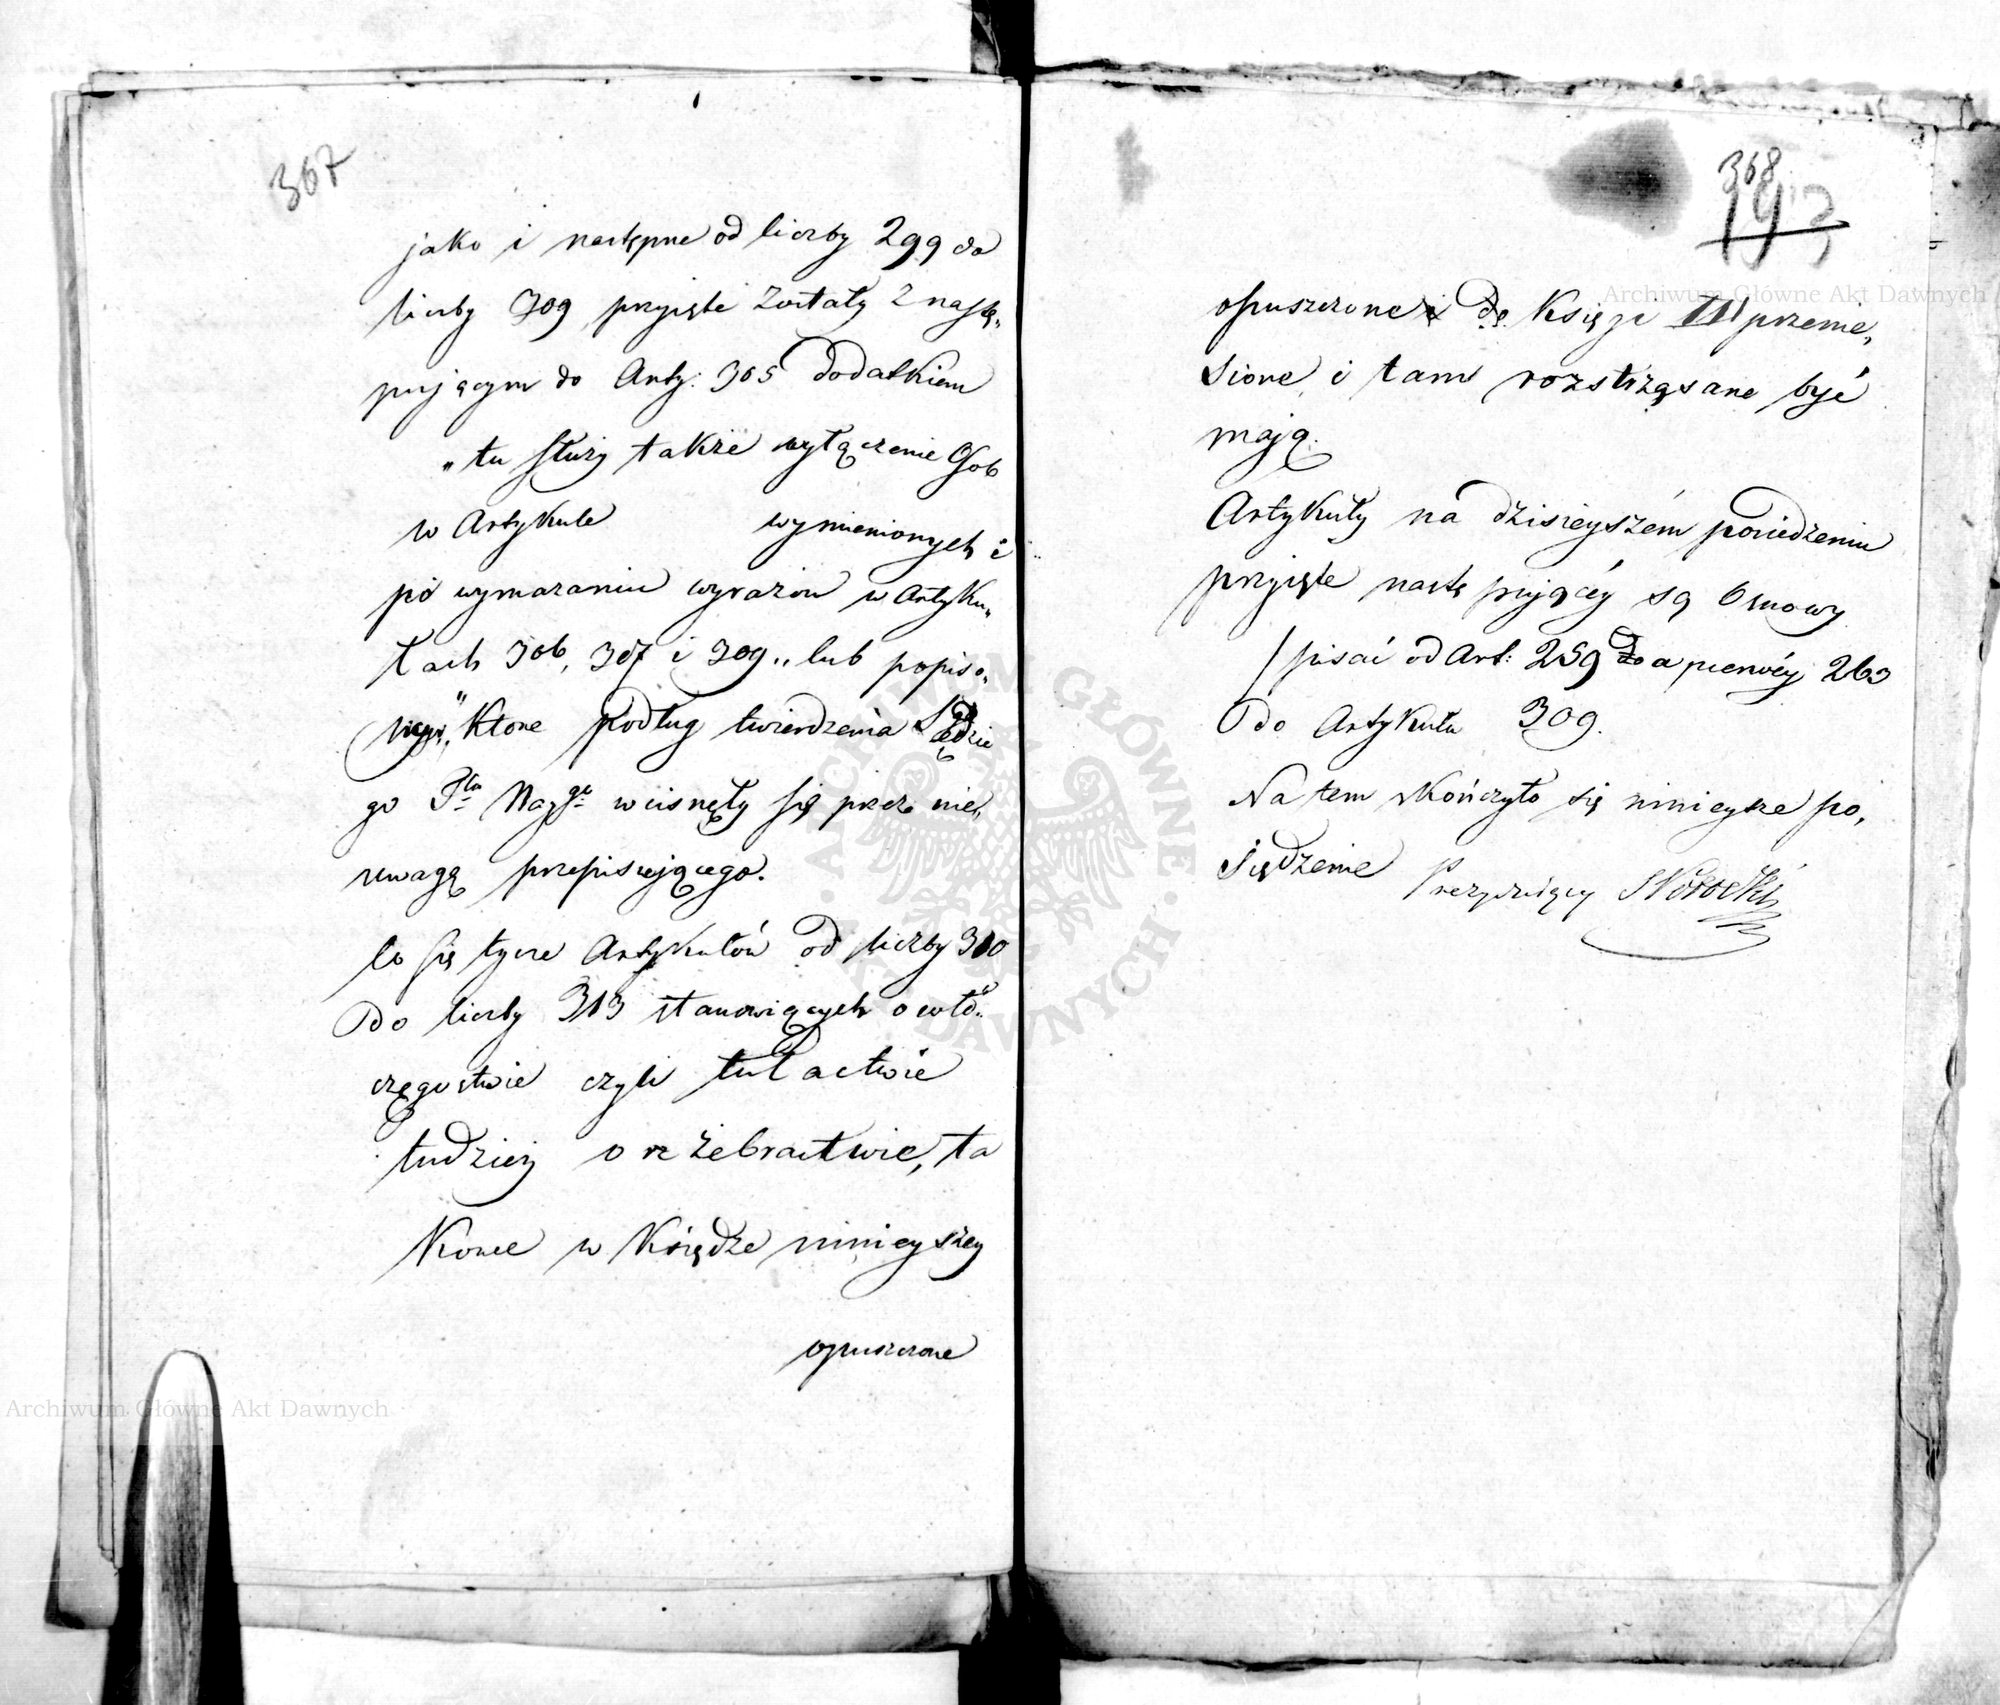 367
jako i następne od liczby 299 do
liczby 309 przyięte zostały z nastę„
puiącym do Arty: 305 dodatkiem
„tu służy także wyłączenie Osób
w Artykule wymienionych i
po wymazaniu wyrazów w Artyku„
łach 306, 307 i 309 „lub popiso„
wym" które podług twierdzenia Sędzie
go Pta Nayge wcisnęły się przez nie„
uwagę przepisuiącego.
Co się tycze Artykułów od liczby 310
do liczby 313 stanowiących o włó„
częgostwie czyli tułactwie
tudzież o żebractwie, ta
kowe w Księdze ninieyszey
opuszczone
368
opuszczone do Księgi III przenie„
sione i tam roztrząsane być
maią.
Artykuły na dzisieyszém posiedzeniu
przyięte następuiącéy są osnowy
/pisać od Art: 259 a pierwéy 263
do Artykułu 309.
Na tem skończyło się ninieysze po„
siedzenie Prezyduiący
Archiwum Główne Akt Dawnych
Archiwum Główne Akt Dawnych
ARCHIWUM GŁÓWNE AKT DAWNYCH